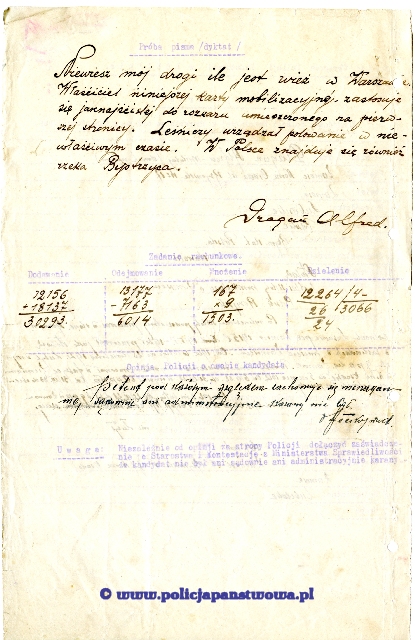 Próba pisma /dyktat/
mój drogi ile jest wież w Warszawie.
Właściciel niniejszej karty mobilizacyjnej, zastosuje
się jaknajściślej do rozkazu umieszczonego na pierw-
szej stronicy. Leśniczy urządzał polowanie w nie-
właściwym czasie. W Polsce znajduje się również
rzeka Bystrzyca.
Dragan Alfred.
Zadanie rachunkowe.
Dodawanie Odejmowanie Mnożenie Dzielenie
12156 13177 167 12264/4-
+18137 7163 × 9 26 13066
30293. 6014 1503. 24
Opinja Policji o osobie kandydata
pod każdym względem zachowuje się nienagan-
nie, sądownie ani administracyjnie karany nie był.
Uwaga: Niezależnie od opinji ze strony Policji dołączyć zaświadcze-
nie z Starostwa i Kontestację z Ministerstwa Sprawiedliwości
że kandydat nie był ani sądownie ani administracyjnie karany
© www.policjapanstwowa.pl